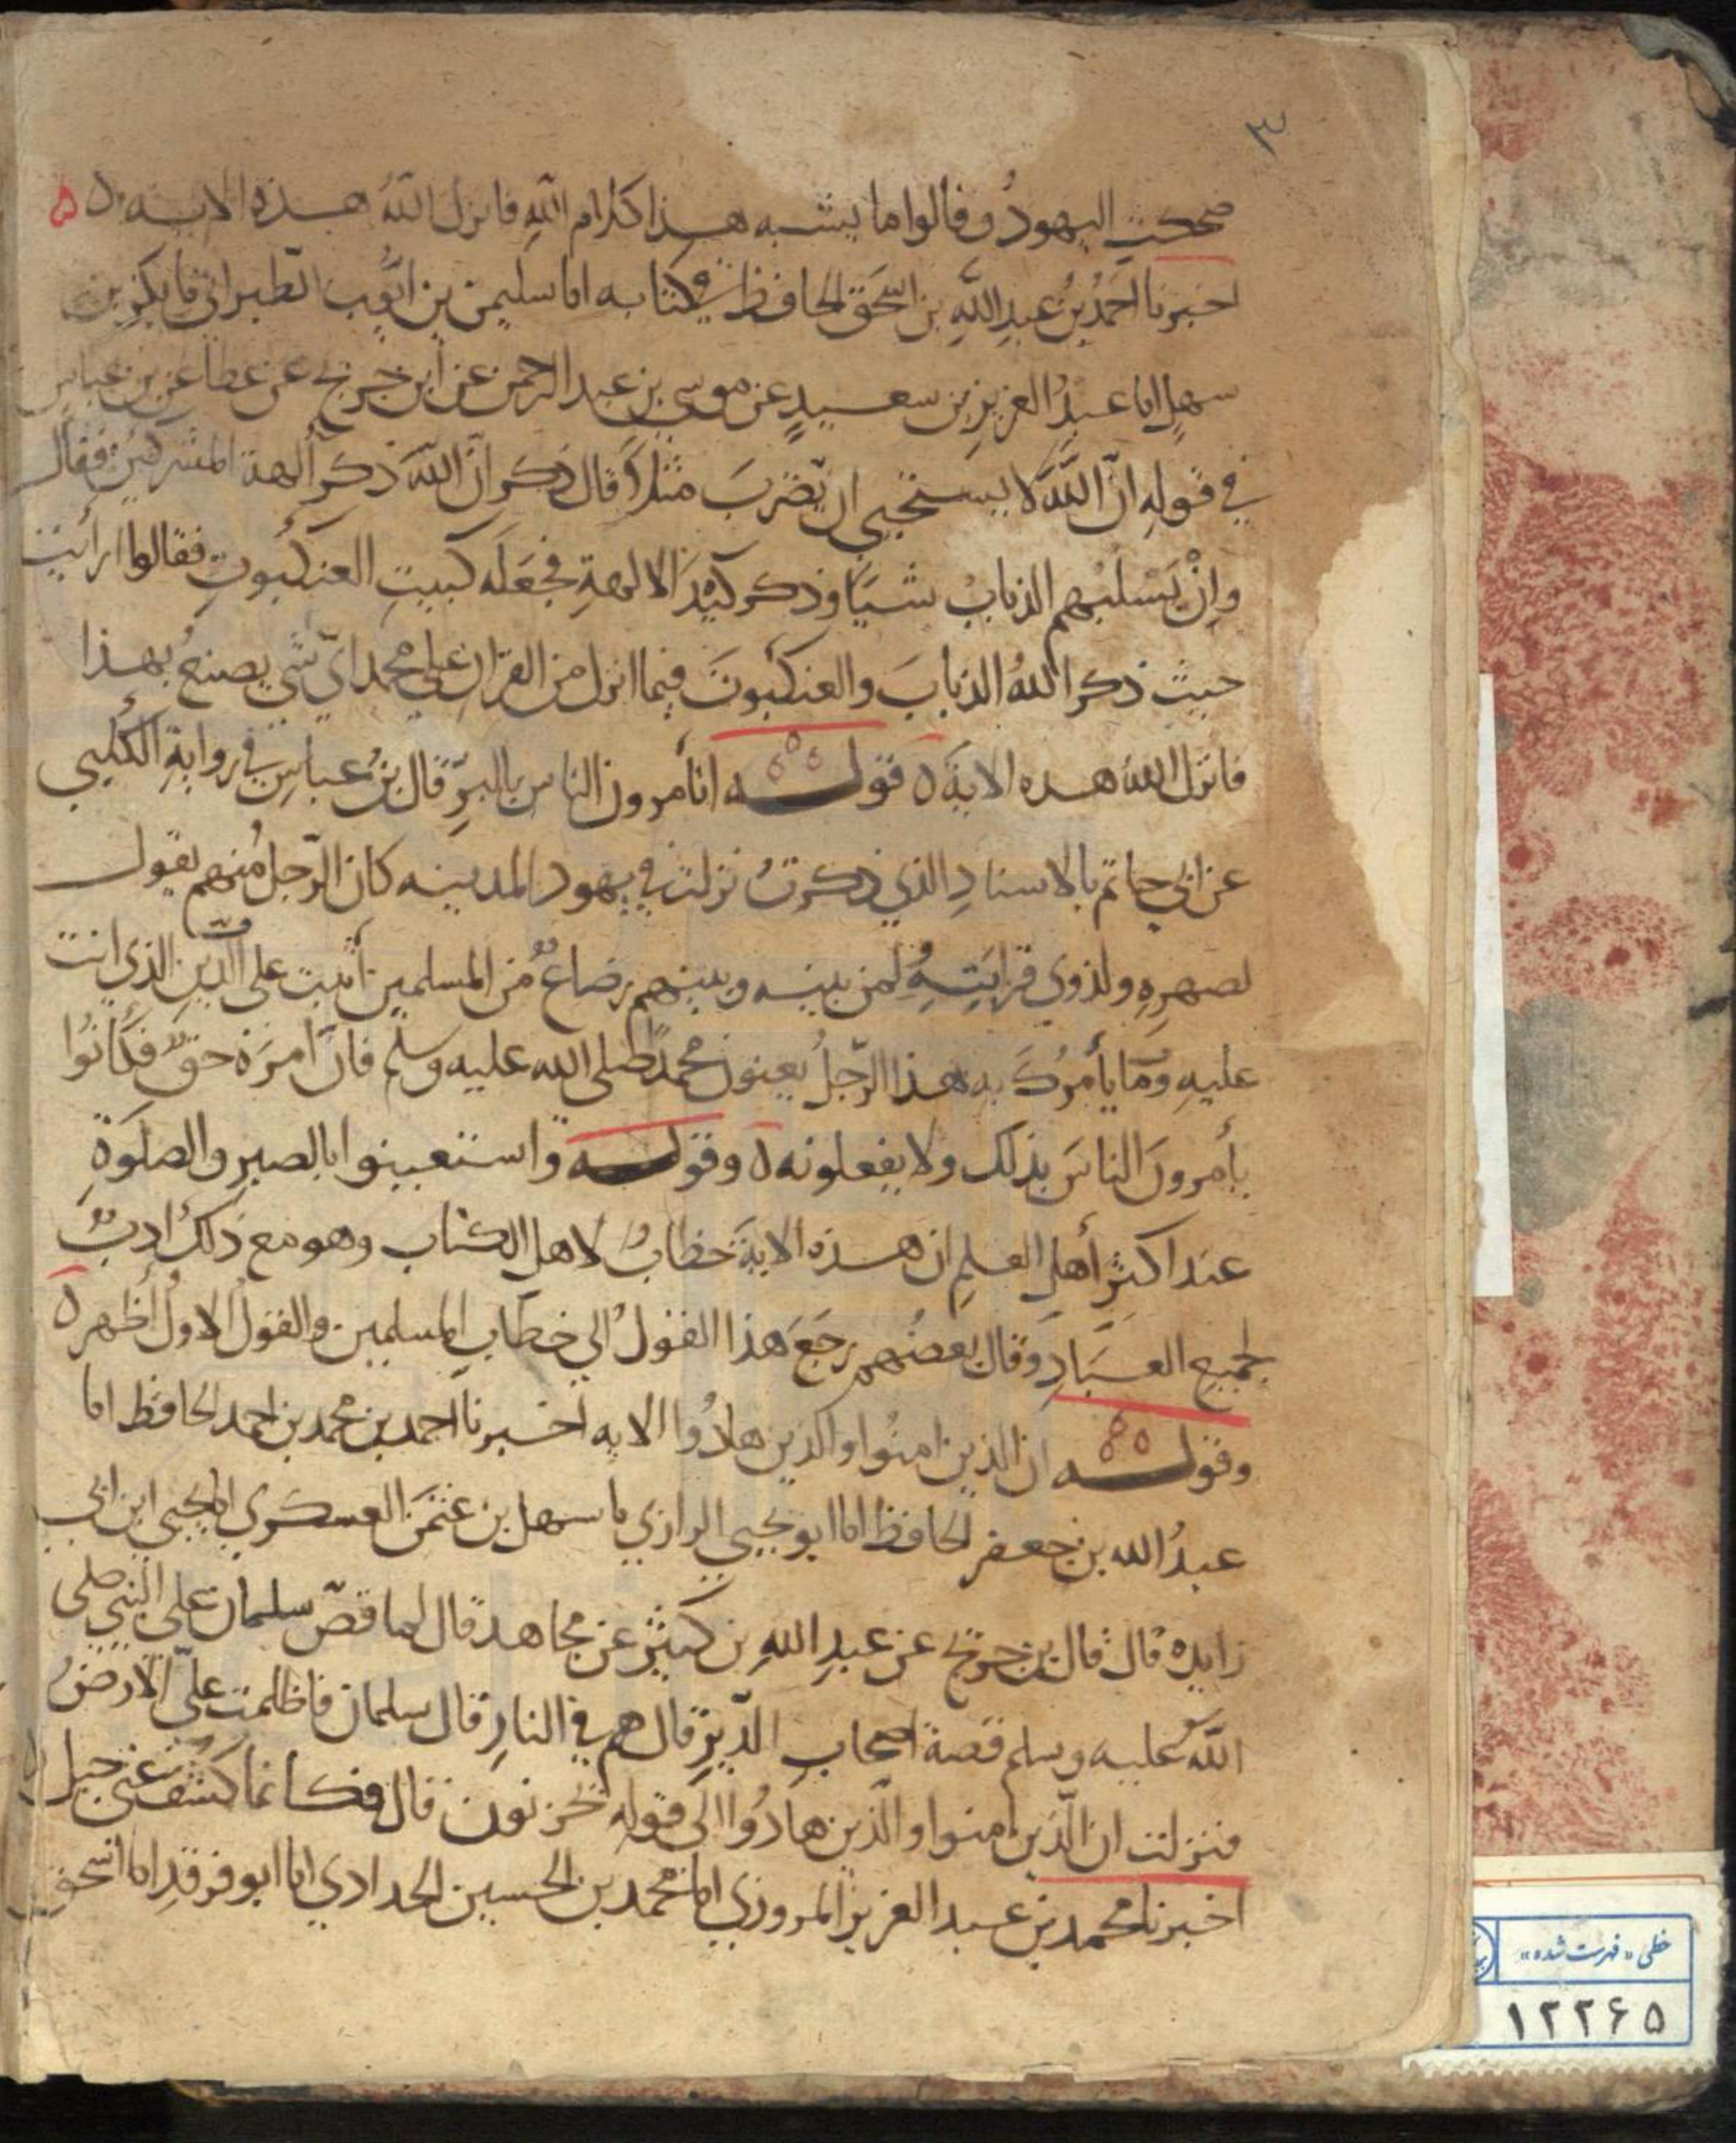 ٣
ضحكت اليهودُ وقالوا ما يشبه هذا كلام اللهِ فانزل اللهُ هذه الايه ٥
اخبرنا احمدُ بنُ عبدِ اللهِ بن اسحق الحافظ في كتابه انا سليمن بن ايُّوب الطبراني نا بكر بن
سهلٍ انا عبدُ العزيز بن سعيدٍ عن موسى بن عبد الرحمن عن ابن جريج عن عطا عن بن عباسٍ
في قوله انّ اللهَ لا يستحيى ان يضربَ مثلاً قال ذكر انّ اللهَ ذكر آلهة المشركين فقال
وانْ يَسْلبْهم الذبابُ شيًا وذكر كيْدَ الالهةِ فجعَلَه كبيتِ العنكبوتِ فقالوا ارأيت
حيث ذكر اللهُ الذبابَ والعنكبوتَ فيما انزل من القران على محمد ايّ شي يصنعُ بهذا
فانزل اللهُ هذه الايةَ ٥ قوله اتأمرون الناس بالبرِّ قال بنُ عباسٍ في روايةِ الكلبي
عن ابي حاتم بالاسنادِ الذي ذكرتُ نزلت في يهود المدينه كان الرّجلُ منهم يقول
لصهرِهِ ولذوي قرابَتِهِ ولمن بينه وبينهم رضاعٌ من المسلمين أثبت على الدّينِ الذي انت
عليهِ وَمّا يأمرُكَ به هذا الرّجلُ يعنون محمداً صلى الله عليه وسلم فانّ امرَهُ حقٌ فكانُوا
يأمرونَ الناسَ بذلك ولا يفعلونه ٥ وقوله واستعينوا بالصبر والصلوةِ
عند اكثرِ أهلِ العلمِ ان هذه الايةَ خطابٌ لاهل الكتاب وهو مع ذلك ادبٌ
لجميع العبَادِ وقال بعضُهم رجَعَ هذا القولُ الي خطابِ المسلمين والقولُ الاولُ أظهر ٥
وقوله ان الذين امنُوا والذين هادُوا الايه اخبرنا احمد بن محمد بن احمد الحافظ انا
عبدُ الله بن جعفر الحافظ انا ابو يحيى الرازي نا سهل بن عثمَن العسكري انا يحيى ابن ابي
زايده قال قال بن جريج عن عبدِ اللهِ بن كثيرٍ عن مجاهد قال لما قصّ سلمان على النبي صلى
اللهُ عليه وسلم قصة اصحابِ الدّيرِ قال هم في النارِ قال سلمان فاظلمت عليّ الارضُ
فنزلت ان الّذين امنوا والّذين هادُوا الى قوله يحزنون قال فكانما كشف عني جبل ٥
اخبرنا محمد بن عبد العزيز المروزي انا محمد بن الحسين الحدادي انا ابو فرقد انا اسحق
خطی «فهرست شده»
١٢٢۶۵